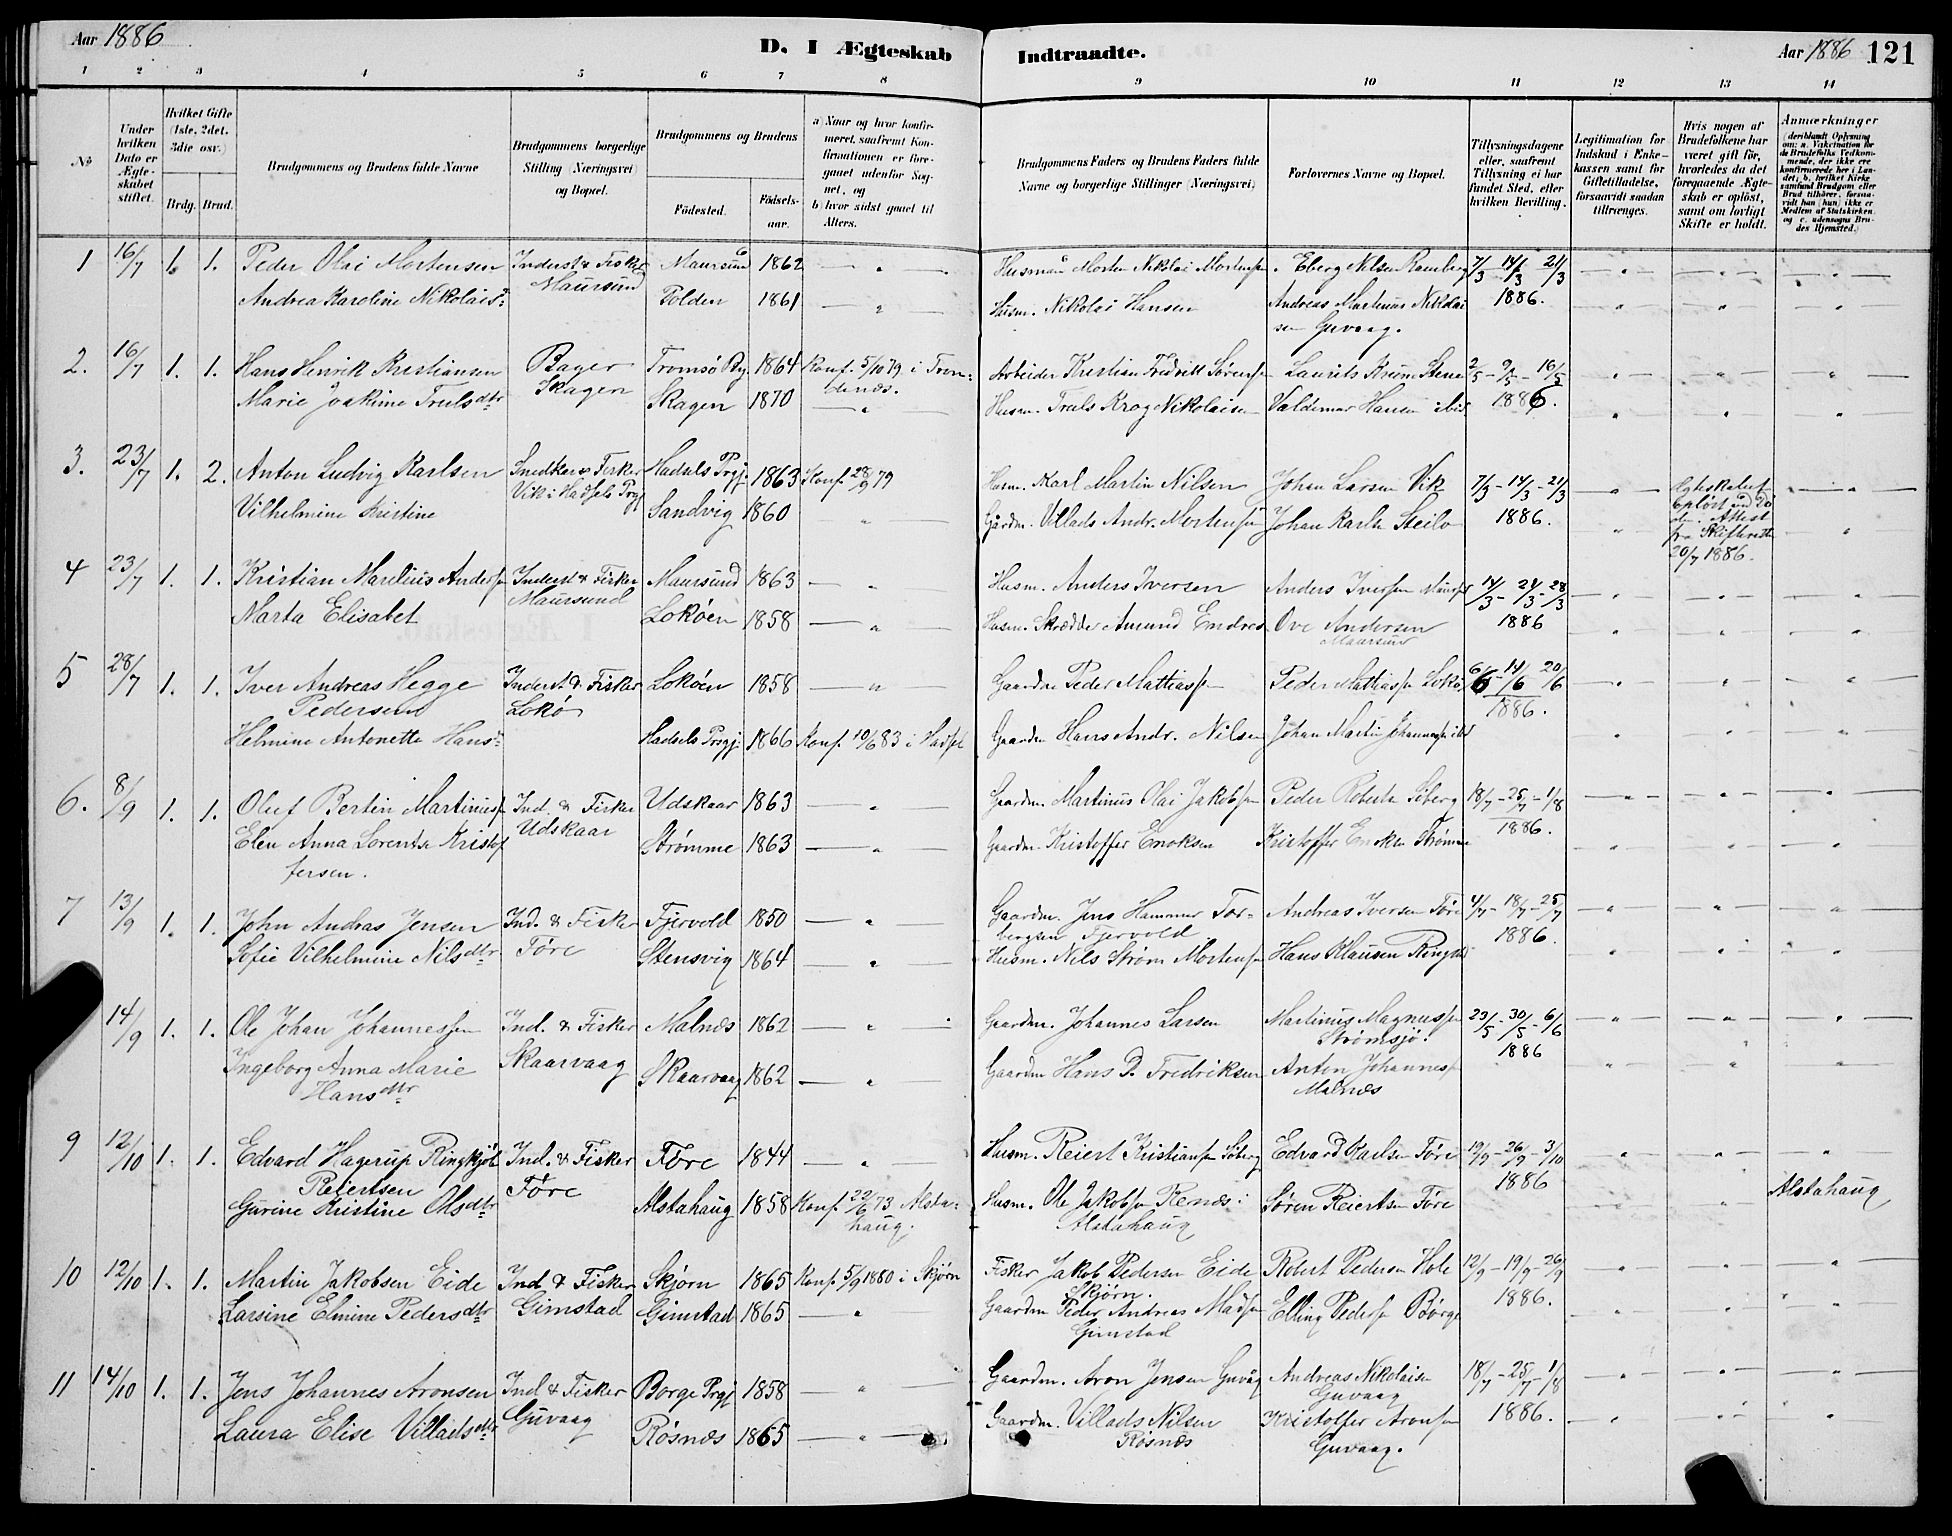 Aar 1886
D. I Ægteskab Indtraadte.
Aar 1886 121
1 2 3 4 5 6 7 8 9 10 11 12 13 14
No
Under hvilken Dato er Ægteskabet stiftet.
Hvilket Gifte (1ste, 2det, 3die osv.)
Brdg. Brud.
Brudgommens og Brudens fulde Navne
Brudgommens borgerlige Stilling (Næringsvei) og Bopæl.
Brudgommens og Brudens
Fødested. Fødselsaar.
a) Naar og hvor konfirmeret, saafremt Konfirmationen er foregaaet udenfor Sognet, og
b) hvor sidst gaaet til Alters.
Brudgommens Faders og Brudens Faders fulde Navne og borgerlige Stillinger (Næringsvei)
Forlovernes Navne og Bopæl.
Tillysningsdagene eller, saafremt Tillysning ei har fundet Sted, efter hvilken Bevilling.
Legitimation for Indskud i Enkekassen samt for Giftetilladelse, forsaavidt saadan tiltrænges.
Hvis nogen af Brudefolkene har været gift før, hvorledes da det foregaaende Ægteskab er opløst, samt om lovligt Skifte er holdt.
Anmærkninger
(deriblandt Oplysning om: a. Vaksination for de Brudefolks Vedkommende, der ikke ere konfirmerede her i Landet; b. hvilket Kirkesamfund Brudgom eller Brud tilhører, forsaavidt han (hun) ikke er Medlem af Statskirken, og c. udensogns Brudes Hjemsted.)
1 16/7 1. 1. Peder Olai Mortensen Inderst & Fisker Maursund 1862 Husmand Morten Nikolai Mortensen. Eberg Nilsen Ramberg 7/3 - 14/3 - 21/3
Maursund
Andrea Karoline Nikolaisdtr Folden 1861 Husm. Nikolai Hansen Andreas Martinus Nikolai 1886.
sen Guvaag.
2. 16/7 1. 1. Hans Henrik Kristiansen Bager Tromsø By 1864 Konf. 5/10 79 i Tron- Arbeider Kristian Fredrik Sørensen Laurits Stene 2/5 - 9/5 - 16/5
Skagen denæs.
Marie Joakime Trulsdtr Skagen 1870 Husm. Truls Krog Nikolaisen Valdemar Hansen ibid 1886.
3. 23/7 1. 2. Anton Ludvig Karlsen Snedker & Fisker Hadsels Prgj. 1863 Konf. 28/9 79 Husm. Karl Martin Nilsen Johan Larsen Vik 7/3 - 14/3 - 21/3 Ægteskabet
Vik i Hadsels Prgj opløst ved Dø
Vilhelmine Kristine Sandvig 1860 Gårdm. Villads Andr. Mortensen Johan Karlsen Steilo 1886. den. Attest
fra Skifteretten
20/7 1886.
4 23/7 1. 1. Kristian Marelius Andersen Inderst & Fisker Maursund 1863 Husm. Anders Iversen Anders Iversen Maursd 14/3 - 21/3 - 28/3
Maursund
Marta Elisabet Lokøen 1858 Husm. Skrædder Amund Endres. Ove Andersen 1886
Maarsund
5 28/7 1. 1. Iver Andreas Hegge Inderst & Fisker Lokøen 1858 Gaardm Peder Mathiassen Peder Mathiassen Lokø 6/6 - 14/6 - 20/6
Pedersen Lokø 1886.
Helmine Antonette Hansdtr Hadsels Prgj. 1866 Konf. 10/6 83 i Hadsel Gaardm Hans Andr. Nilsen Johan Martin Johannessen ibid
6. 8/9 1. 1. Oluf Bertin Martinussen Ind. & Fisker Udskaar 1863 Gaardm. Martinus Olai Jakobsen Peder Robertsen Søberg 18/7 - 25/7 - 1/8
Udskaar 1886.
Elen Anna Lorentse Kristof Strømme 1863 Gaardm. Kristoffer Enoksen Kristoffer Enoksen Strømme
fersen.
7 13/9 1. 1. John Andras Jensen Ind. & Fisker Fjervold 1850 Gaardm. Jens Hammer Tor- Andreas Iversen Føre 4/7 - 18/7 - 25/7
bergsen Fjervold
Sofie Vilhelmine Nilsdtr Føre Stensvig 1864 Husm. Nils Strøm Mortensen Hans Klausen 1886.
14/9 1. 1. Ole Johan Johannessen Ind. & Fisker Malnæs 1862 Gaardm. Johannes Larsen Martinus Magnussen 23/5 - 30/5 - 6/6
Strømsjø. 1886
Ingeborg Anna Marie Skaarvaag Skaarvaag 1862 Gaardm Hans D. Fredriksen Anton Johannessen
Hansdtr Malnæs
9 12/10 1. 1. Edvard Hagerup Ringkjøb Ind. & Fisker Føre 1844 Husm. Reiert Kristiansen Søberg Edvard Karlsen Føre 19/9 - 26/9 - 3/10
Reiertsen Føre 1886
Gurine Kristine Olsdtr Alstahaug 1858 Konf. 22/6 73 Alsta- Husm. Ole Jakobsen Renæs i Søren Reiertsen Føre Alstahaug
haug. Alstahaug
10 12/10 1. 1. Martin Jakobsen Eide Ind & Fisker Skjørn 1865 Konf. 5/9 1880 i Skjørn Fisker Jakob Pedersen Eide Robert Pedersen Hole 12/9 - 19/9 - 26/9
Skjørn. 1886.
Larsine Elmine Pedersdtr Gimstad Gimstad 1865 Gaardm Peder Andreas Madsen Elling Pedersen Børge
Gimstad
11 14/10 1. 1. Jens Johannes Aronsen Ind & Fisker Borge Prgj 1858 Gaardm. Aron Jensen Guvåg Andreas Nikolaisen 18/7 - 25/7 - 1/8
Guvaag
Laura Elise Villadsdtr Guvaag Røsnæs 1865 Gaardm. Villads Nilsen Kristoffer Aronsen 1886.
Røsnæs Guvaag.